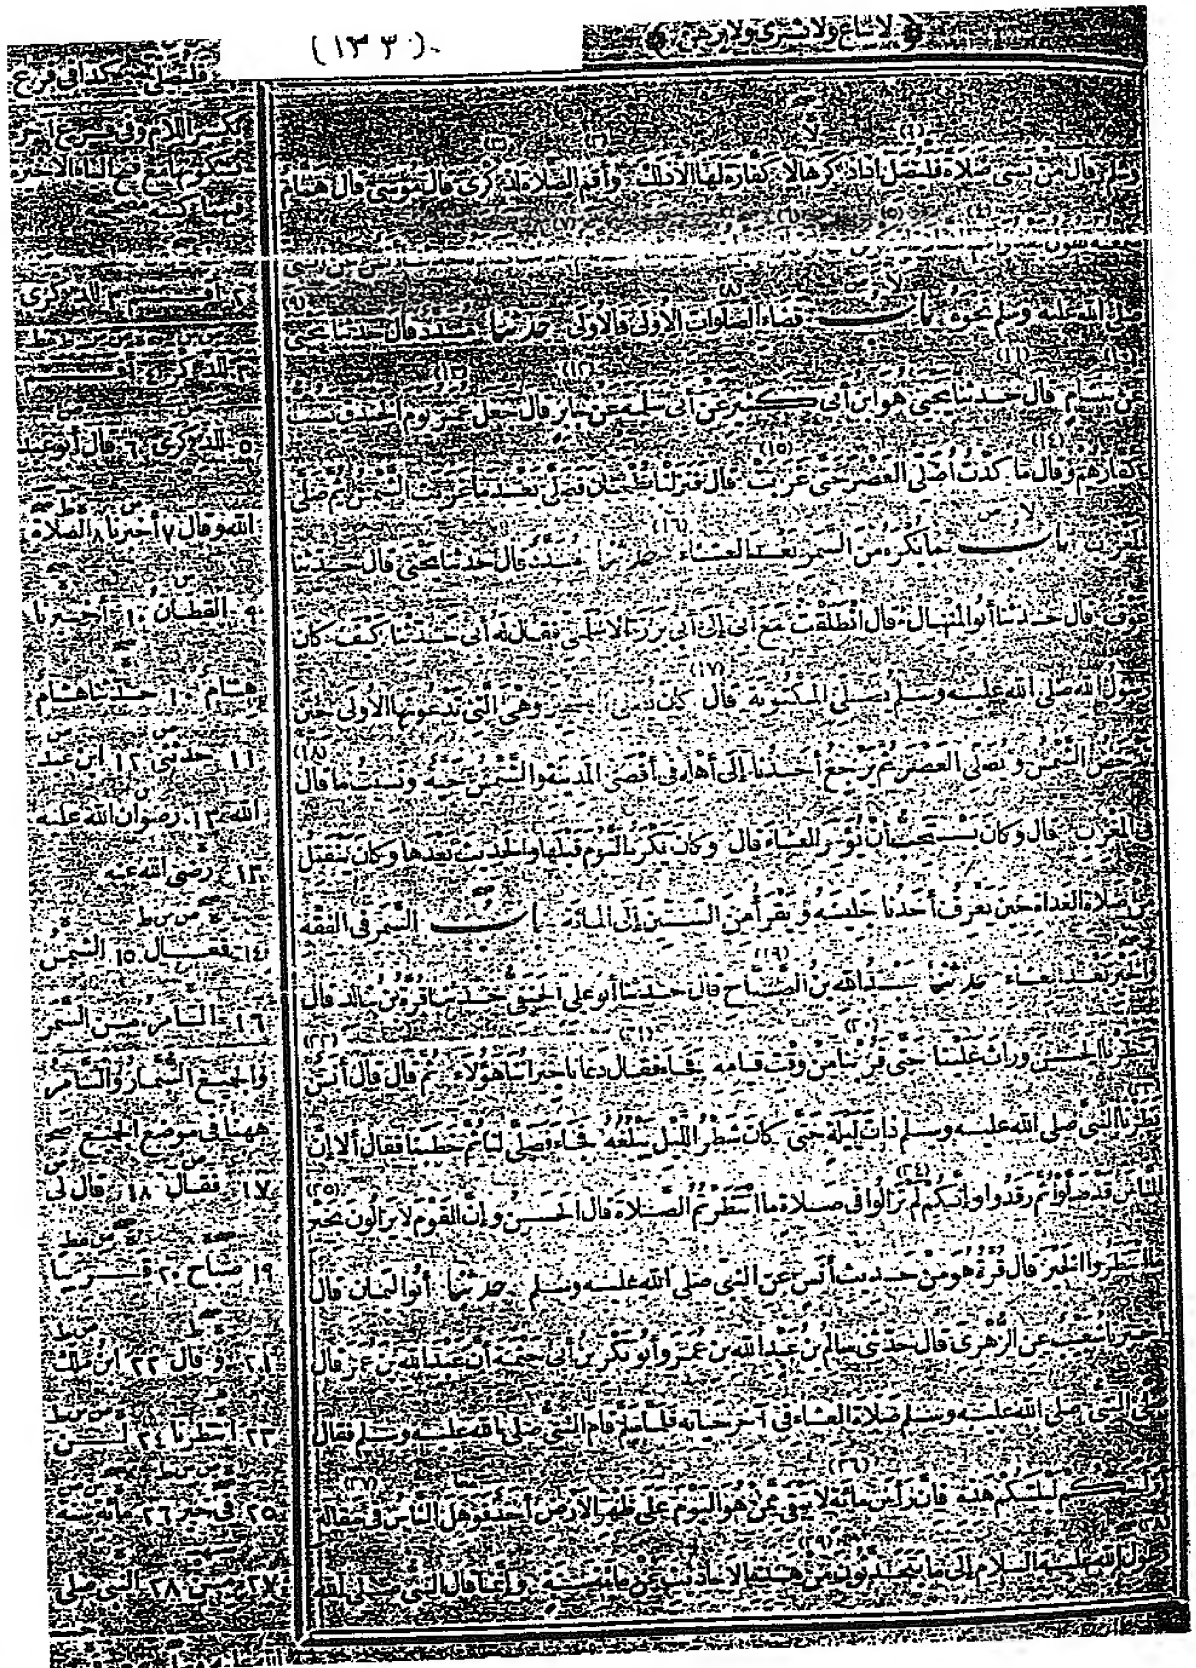 لا تباع ولا تشرى ولا ترهن
(١٣٣)
وسلم قال من نسى صلاة فليصل اذا ذكرها لا كفارة لها الا ذلك وأقم الصلاة لذكرى قال موسى قال همام
صلى الله عليه وسلم نحوه باب قضاء الصلوات الاولى فالاولى حدثنا مسدد قال حدثنا يحيى
عن هشام قال حدثنا يحيى هو ابن أبى كثير عن أبى سلمة عن جابر قال جعل عمر يوم الخندق يسب
كفارهم وقال ما كدت أصلى العصر حتى غربت قال فنزلنا بطحان فصلى بعد ما غربت الشمس ثم صلى
المغرب باب ما يكره من السمر بعد العشاء حدثنا مسدد قال حدثنا يحيى قال حدثنا
عوف قال حدثنا أبو المنهال قال انطلقت مع أبى الى أبى برزة الاسلمى فقال له أبى حدثنا كيف كان
رسول الله صلى الله عليه وسلم يصلى المكتوبة قال كان يصلى الهجير وهى التى تدعونها الاولى حين
تدحض الشمس ويصلى العصر ثم يرجع أحدنا إلى أهله فى أقصى المدينة والشمس حية ونسيت ما قال
فى المغرب قال وكان يستحب أن يؤخر العشاء قال وكان يكره النوم قبلها والحديث بعدها وكان ينفتل
من صلاة الغداة حين يعرف أحدنا جليسه ويقرأ من الستين إلى المائة باب السمر فى الفقه
والخير بعد العشاء حدثنا عبد الله بن الصباح قال حدثنا أبو على الحنفى حدثنا قرة بن خالد قال
انتظرنا الحسن وراث علينا حتى قربنا من وقت قيامه فجاء فقال دعانا جيراننا هؤلاء ثم قال قال أنس
نظرنا النبى صلى الله عليه وسلم ذات ليلة حتى كان شطر الليل يبلغه فجاء فصلى لنا ثم خطبنا فقال ألا إن
الناس قد صلوا ثم رقدوا وإنكم لم تزالوا فى صلاة ما انتظرتم الصلاة قال الحسن وإن القوم لا يزالون بخير
ما انتظروا الخير قال قرة هو من حديث أنس عن النبى صلى الله عليه وسلم حدثنا أبو اليمان قال
أخبرنا شعيب عن الزهرى قال حدثنى سالم بن عبد الله بن عمر وأبو بكر بن أبى حثمة أن عبد الله بن عمر قال
صلى النبى صلى الله عليه وسلم صلاة العشاء فى آخر حياته فلما سلم قام النبى صلى الله عليه وسلم فقال
أرأيتكم ليلتكم هذه فان رأس مائة لا يبقى ممن هو اليوم على ظهر الارض أحد فوهل الناس فى مقالة
رسول الله عليه السلام إلى ما يتحدثون من هذه الاحاديث عن مائة سنة وإنما قال النبى صلى الله
١ فليصلى كذا فى فرع
بكسر اللام وفى فرع آخر
بسكونها مع فتح الياء الاخيرة
٢ أقم ٣ للذكرى
٣ للذكرى ٤ أقم
٥ للذكرى ٦ قال أبو عبد
الله وقال ٧ أخبرنا ٨ الصلاة
٩ القطان ١٠ أخبرنا
هشام ١٠ حدثنا هشام
١١ حدثنى ١٢ ابن عبد
الله ١٣ رضوان الله عليه
١٣ رضى الله عنه
١٤ فقال ١٥ الشمس
١٦ السامر من السمر
والجميع السمار والسامر
ههنا فى موضع الجميع
١٧ فقال ١٨ قال لى
١٩ صباح ٢٠
٢١ وقال ٢٢ ابن ملك
٢٣ انتظرنا ٢٤ لن
٢٥ فى خير ٢٦ مائة سنة
٢٧ من ٢٨ النبى صلى